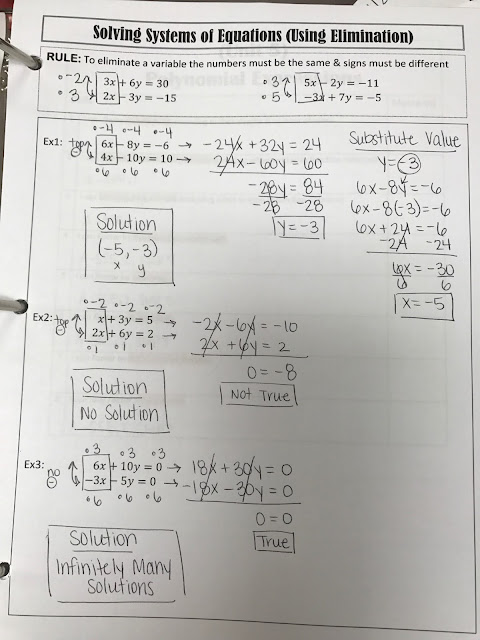 Solving Systems of Equations (Using Elimination)
RULE: To eliminate a variable the numbers must be the same & signs must be different
•-2 3x + 6y = 30
•3 2x - 3y = -15
•3 5x - 2y = -11
•5 -3x + 7y = -5
•-4 •-4 •-4
Ex1: top 6x - 8y = -6 → -24x + 32y = 24
⊖ 4x - 10y = 10 → 24x - 60y = 60
•6 •6 •6
-28y = 84
-28 -28
y = -3
Solution
(-5, -3)
x y
Substitute Value
y = -3
6x - 8y = -6
6x - 8(-3) = -6
6x + 24 = -6
-24 -24
6x = -30
6 6
x = -5
•-2 •-2 •-2
Ex2: top x + 3y = 5 → -2x - 6y = -10
⊖ 2x + 6y = 2 → 2x + 6y = 2
•1 •1 •1
0 = -8
Not True
Solution
No Solution
•3 •3 •3
Ex3: no 6x + 10y = 0 → 18x + 30y = 0
⊖ -3x - 5y = 0 → -18x - 30y = 0
•6 •6 •6
0 = 0
True
Solution
Infinitely Many
Solutions